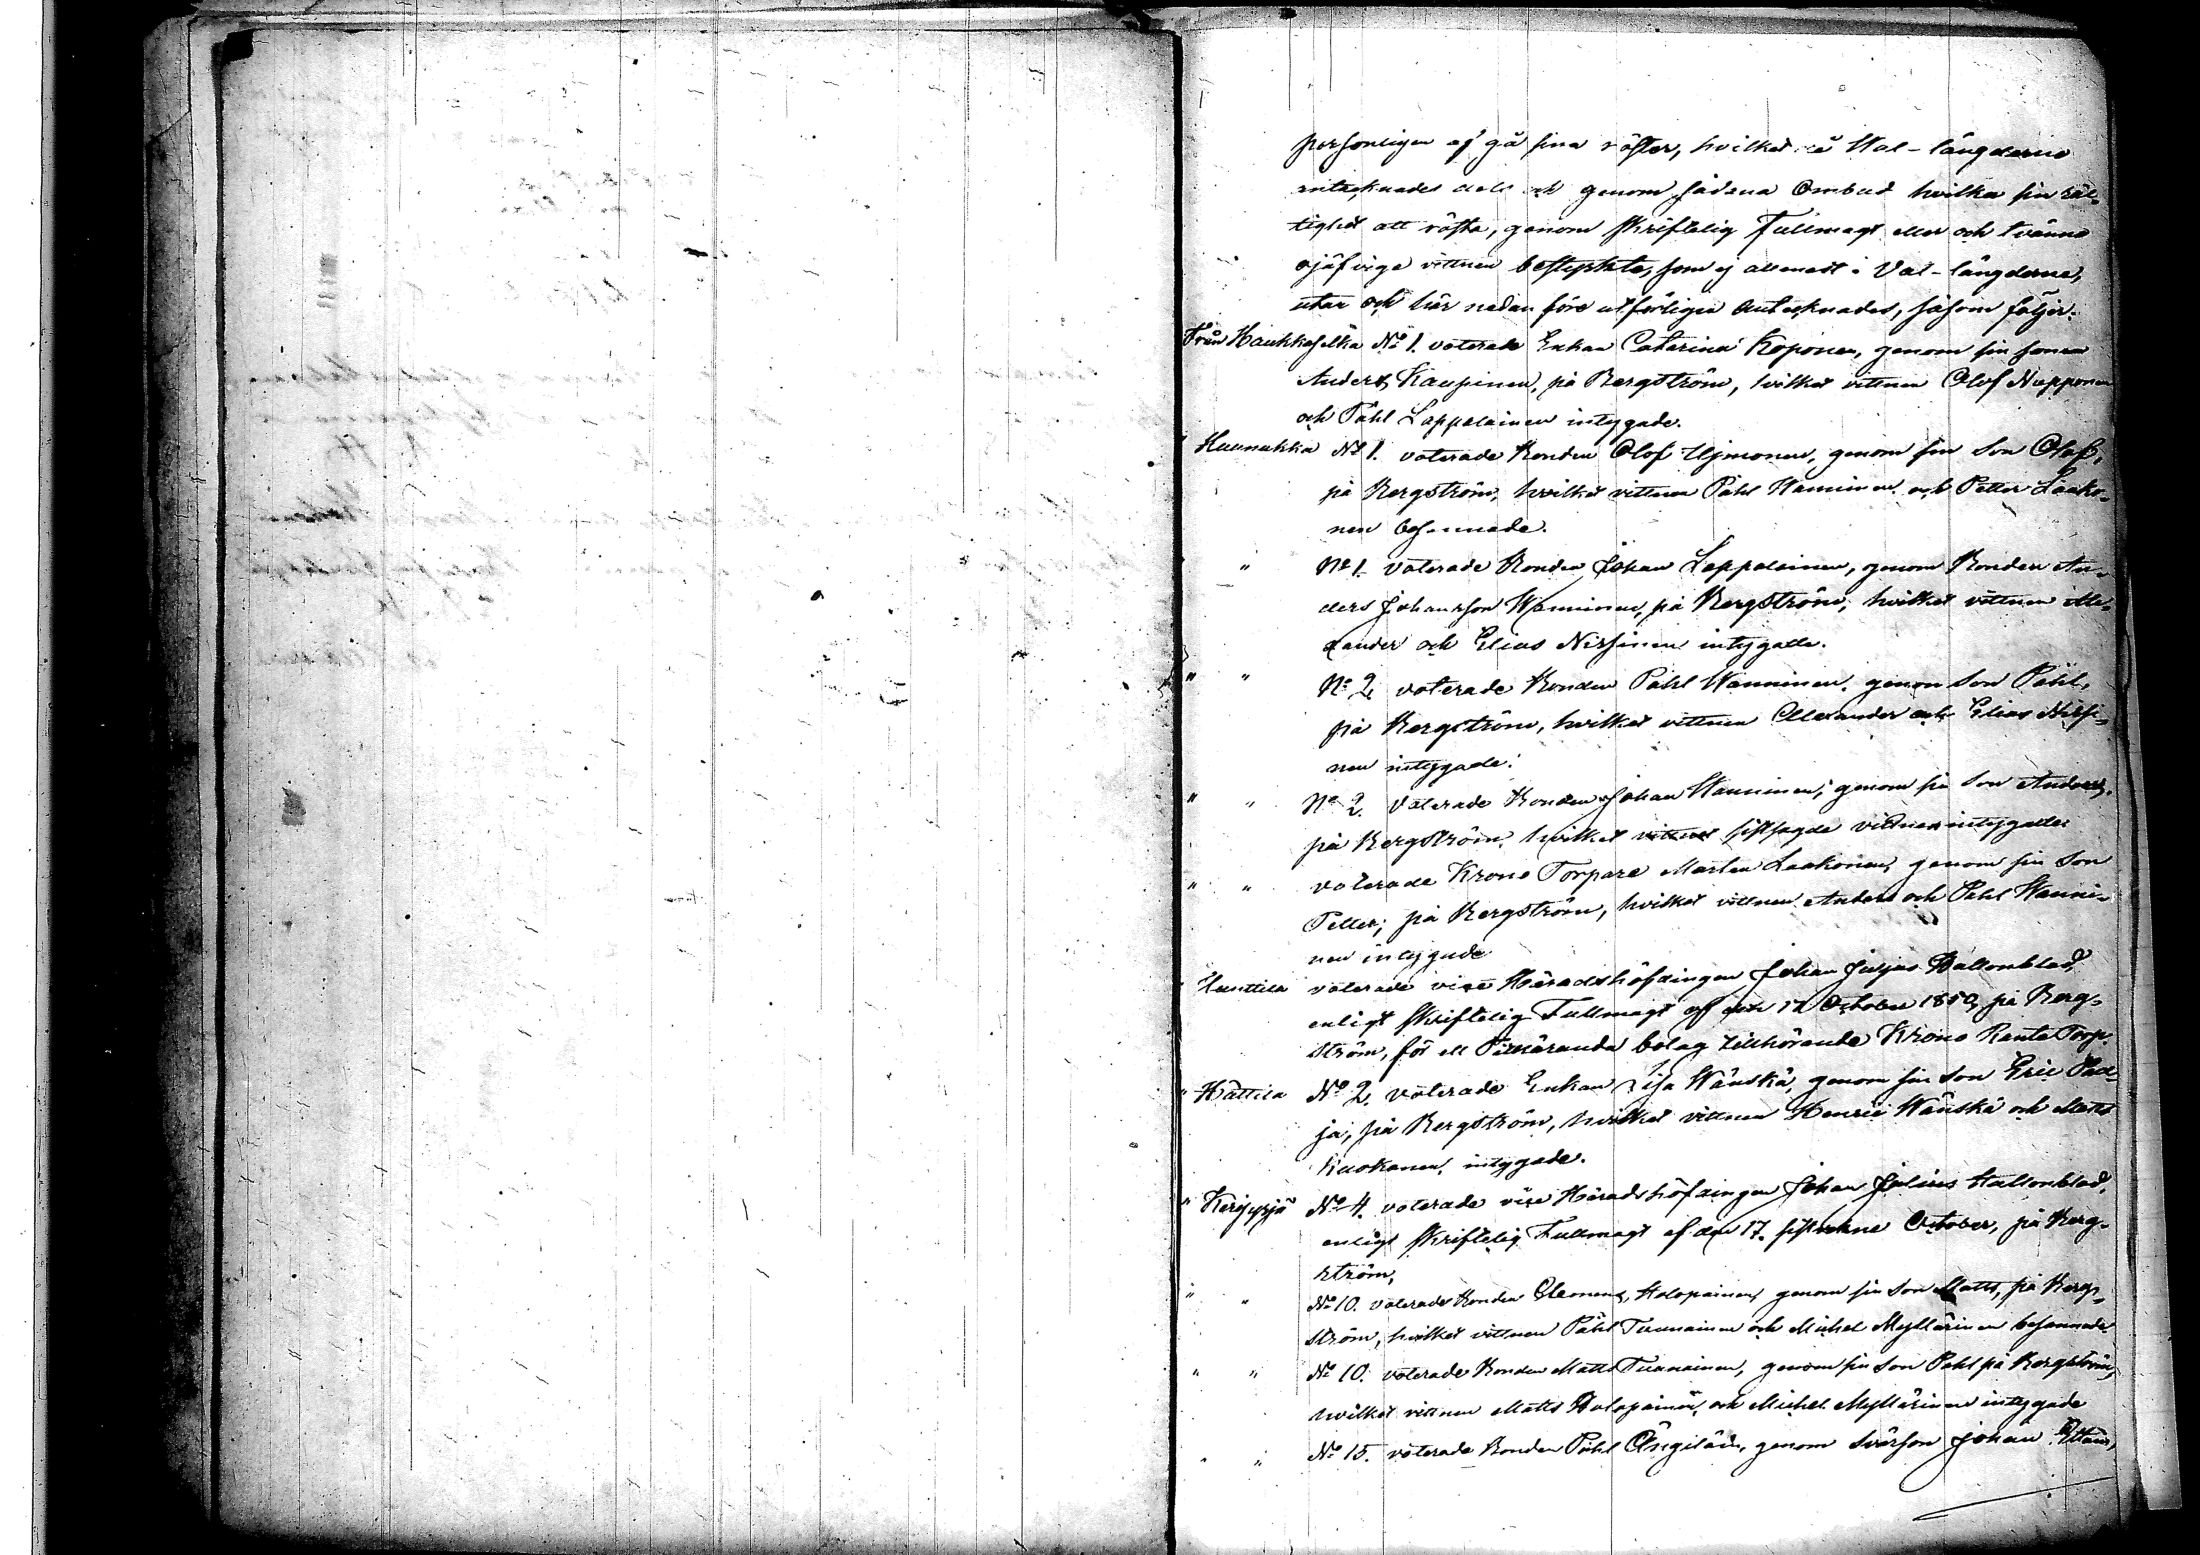 personligen afgå sina röster, hvilket i Wal-längderne
antecknades dels och genom sådana Ombud hvilka sin rät-
tighet att rösta, genom skriftelig Fullmagt eller och tvänne
ojäfvige vittnen bestyrkte, som ej allenast i Val-längderne,
utan och här nedanföre utförligen antecknades, såsom följer:
Från Haukkaselkä No 1. voterade Enkan Catarina Koponen, genom sin sonen
Anders Kaupinen, på Bergström, hvilket vittnen Olof Nupponen
och Påhl Lappalainen intygade.
" Huunukka No 1. voterade Bonden Olof Ujmonen, genom sin Son Olof,
på Bergström, hvilket vittnen Påhl Wanninen och Petter Laako-
nen besannade.
" " No 1. voterade Bonden Johan Lappalainen, genom Bonden An-
ders Johansson Wanninen, på Bergström, hvilket vittnen Ale-
xander och Elias Nissinen intygade.
" " No 2. voterade Bonden Påhl Wanninen, genom Son Påhl,
på Bergström, hvilket vittnen Alexander och Elias Nissi-
nen intygade.
" " No 2. voterade Bonden Johan Wanninen, genom sin Son Anders,
på Bergström, hvilket vittnet sistsagde vittnen intygade.
" " voterade Krono Torpare Marten Laakonen, genom sin Son
Petter, på Bergström, hvilket vittnen Anders och Påhl Wanni-
nen intygade
" Hunttila voterade vice Häradshöfdingen Johan Julius Hallonblad,
enligt skriftelig Fullmagt af den 17 October 1859, på Berg-
ström, för ett Pitkäranda bolag tillhörande Krono Rante Torp.
" Hättila No 2. voterade Enkan Lisa Wänskä, genom sin Son Eric
ja, på Bergström, hvilket vittnen Henric Wänskä och Matts
Kuokanen, intygade.
" Kerisyrjä No 4. voterade vice Häradshöfdingen Johan Julius Hallonblad,
enligt skriftelig Fullmagt af den 17. sistledne October, på Berg-
ström,
" " No 10. voterade Bonden Clemens Holopainen, genom sin Son Matts, på Berg-
ström, hvilket vittnen Påhl Tuunainen och Michel Myllärinen besannade.
" " No 10. voterade Bonden Matts Tuunainen, genom sin Son Påhl på Bergström,
hvilket vittnen Matts Holopainen, och Michel Myllärinen intygade
" " No 15. voterade Bonden Påhl genom Svärson Johan